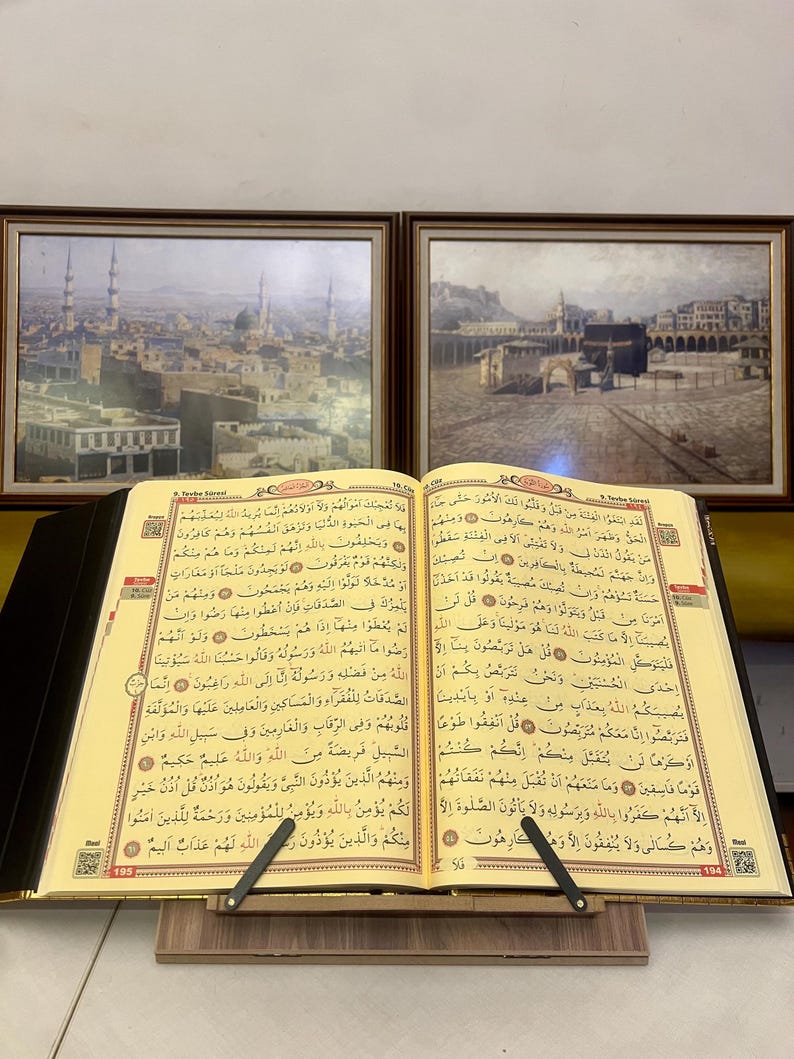 10. Cüz
9. Tevbe Sûresi
سُورَةُ التَّوْبَةِ
١٩٤
لَقَدِ ابْتَغَوُا الْفِتْنَةَ مِنْ قَبْلُ وَقَلَّبُوا لَكَ الْاُمُورَ حَتّٰى جَٓاءَ
الْحَقُّ وَظَهَرَ اَمْرُ اللّٰهِ وَهُمْ كَارِهُونَ ٤٨ وَمِنْهُمْ
مَنْ يَقُولُ ائْذَنْ لٖى وَلَا تَفْتِنّٖى اَلَا فِى الْفِتْنَةِ سَقَطُوا
وَاِنَّ جَهَنَّمَ لَمُحٖيطَةٌ بِالْكَافِرٖينَ ٤٩ اِنْ تُصِبْكَ
حَسَنَةٌ تَسُؤْهُمْ وَاِنْ تُصِبْكَ مُصٖيبَةٌ يَقُولُوا قَدْ اَخَذْنَٓا
اَمْرَنَا مِنْ قَبْلُ وَيَتَوَلَّوْا وَهُمْ فَرِحُونَ ٥٠ قُلْ لَنْ
يُصٖيبَنَٓا اِلَّا مَا كَتَبَ اللّٰهُ لَنَا هُوَ مَوْلٰينَا وَعَلَى اللّٰهِ
فَلْيَتَوَكَّلِ الْمُؤْمِنُونَ ٥١ قُلْ هَلْ تَرَبَّصُونَ بِنَٓا اِلَّٓا
اِحْدَى الْحُسْنَيَيْنِ وَنَحْنُ نَتَرَبَّصُ بِكُمْ اَنْ
يُصٖيبَكُمُ اللّٰهُ بِعَذَابٍ مِنْ عِنْدِهٖٓ اَوْ بِاَيْدٖينَا
فَتَرَبَّصُٓوا اِنَّا مَعَكُمْ مُتَرَبِّصُونَ ٥٢ قُلْ اَنْفِقُوا طَوْعًا
اَوْ كَرْهًا لَنْ يُتَقَبَّلَ مِنْكُمْ اِنَّكُمْ كُنْتُمْ
قَوْمًا فَاسِقٖينَ ٥٣ وَمَا مَنَعَهُمْ اَنْ تُقْبَلَ مِنْهُمْ نَفَقَاتُهُمْ
اِلَّٓا اَنَّهُمْ كَفَرُوا بِاللّٰهِ وَبِرَسُولِهٖ وَلَا يَأْتُونَ الصَّلٰوةَ اِلَّا
وَهُمْ كُسَالٰى وَلَا يُنْفِقُونَ اِلَّا وَهُمْ كَارِهُونَ ٥٤
فَلَا
194
Arapça
Tevbe
10. Cüz
9. Sûre
Meal
9. Tevbe Sûresi
10. Cüz
اَلْجُزْءُ الْعَاشِرُ
١٩٥
فَلَا تُعْجِبْكَ اَمْوَالُهُمْ وَلَٓا اَوْلَادُهُمْ اِنَّمَا يُرٖيدُ اللّٰهُ لِيُعَذِّبَهُمْ
بِهَا فِى الْحَيٰوةِ الدُّنْيَا وَتَزْهَقَ اَنْفُسُهُمْ وَهُمْ كَافِرُونَ
٥٥ وَيَحْلِفُونَ بِاللّٰهِ اِنَّهُمْ لَمِنْكُمْ وَمَا هُمْ مِنْكُمْ
وَلٰكِنَّهُمْ قَوْمٌ يَفْرَقُونَ ٥٦ لَوْ يَجِدُونَ مَلْجَـًٔا اَوْ مَغَارَاتٍ
اَوْ مُدَّخَلًا لَوَلَّوْا اِلَيْهِ وَهُمْ يَجْمَحُونَ ٥٧ وَمِنْهُمْ مَنْ
يَلْمِزُكَ فِى الصَّدَقَاتِ فَاِنْ اُعْطُوا مِنْهَا رَضُوا وَاِنْ
لَمْ يُعْطَوْا مِنْهَٓا اِذَا هُمْ يَسْخَطُونَ ٥٨ وَلَوْ اَنَّهُمْ
رَضُوا مَٓا اٰتٰيهُمُ اللّٰهُ وَرَسُولُهُ وَقَالُوا حَسْبُنَا اللّٰهُ سَيُؤْتٖينَا
اللّٰهُ مِنْ فَضْلِهٖ وَرَسُولُهُ اِنَّٓا اِلَى اللّٰهِ رَاغِبُونَ ٥٩ اِنَّمَا
الصَّدَقَاتُ لِلْفُقَرَٓاءِ وَالْمَسَاكٖينِ وَالْعَامِلٖينَ عَلَيْهَا وَالْمُؤَلَّفَةِ
قُلُوبُهُمْ وَفِى الرِّقَابِ وَالْغَارِمٖينَ وَفٖى سَبٖيلِ اللّٰهِ وَابْنِ
السَّبٖيلِ فَرٖيضَةً مِنَ اللّٰهِ وَاللّٰهُ عَلٖيمٌ حَكٖيمٌ ٦٠
وَمِنْهُمُ الَّذٖينَ يُؤْذُونَ النَّبِىَّ وَيَقُولُونَ هُوَ اُذُنٌ قُلْ اُذُنُ خَيْرٍ
لَكُمْ يُؤْمِنُ بِاللّٰهِ وَيُؤْمِنُ لِلْمُؤْمِنٖينَ وَرَحْمَةٌ لِلَّذٖينَ اٰمَنُوا
مِنْكُمْ وَالَّذٖينَ يُؤْذُونَ رَسُولَ اللّٰهِ لَهُمْ عَذَابٌ اَلٖيمٌ ٦١
حزب
195
Arapça
Tevbe
10. Cüz
9. Sûre
Meal